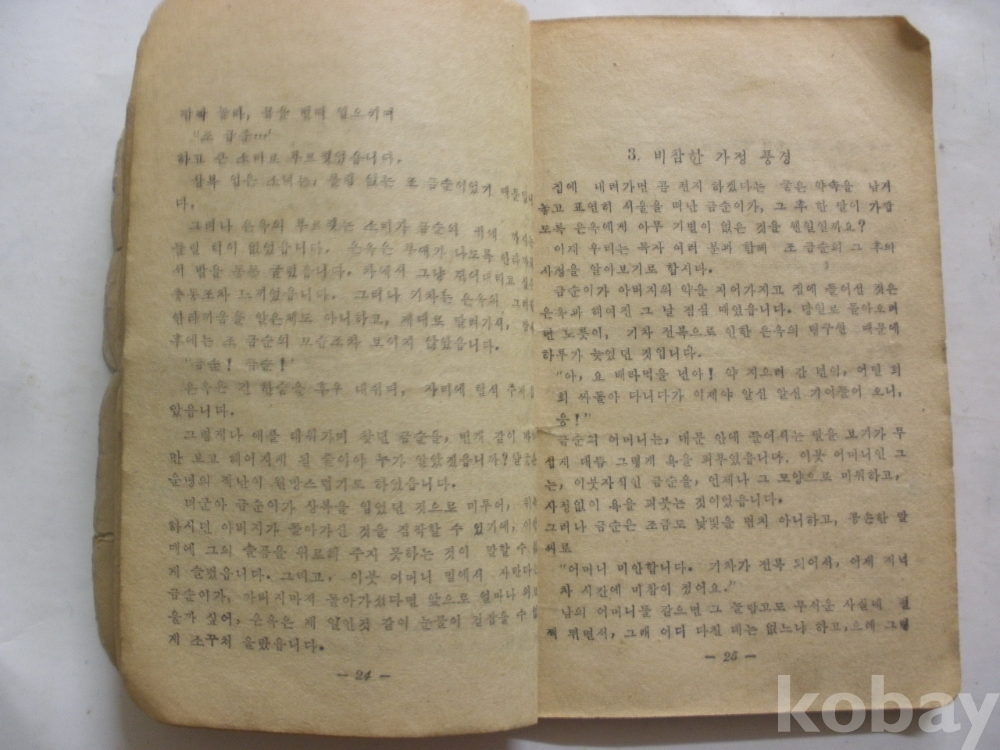 깜짝 놀라, 몸을 벌떡 일으키며
"조 금순…"
하고 큰 소리로 부르짖었습니다.
상복 입은 소녀는, 틀림 없는 조 금순이었기 때문입니
다.
그러나 은옥의 부르짖는 소리가 금순의 귀에
들릴 턱이 없었습니다. 은옥은 부애가 나도록 안타까워
서 발을 동동 굴렀습니다. 차에서 그냥 뛰어내리고 싶은
충동조차 느끼었습니다. 그러나 기차는 은옥의 그러한
안타까움을 알은체도 아니하고, 제대로 달려가서,
후에는 조 금순의 모습조차 보이지 않았습니다.
"금순! 금순!"
은옥은 긴 한숨을 후우 내쉬며, 자리에 털석 주저
았읍니다.
그렇게나 애를 태워가며 찾던 금순을, 번개 같이
만 보고 헤어지게 될 줄이야 누가 알았겠읍니까?
운명의 장난이 원망스럽기도 하였습니다.
더군다나 금순이가 상복을 입었던 것으로 미루어,
하시던 아버지가 돌아가신 것을 짐작할 수 있기에,
때에 그의 슬픔을 위로해 주지 못하는 것이 말할 수
게 슬펐습니다. 그리고, 이붓 어머니 밑에서 자란다는
금순이가, 아버지마저 돌아가셨다면 앞으로 얼마나
울가 싶어, 은옥은 제 일인것 같이 눈물이 걷잡을 수
게 소꾸쳐 올랐습니다.
— 24 —
3. 비참한 가정 풍경
집에 내려가면 곧 편지 하겠다는 굳은 약속을 남겨
놓고 표연히 서울을 떠난 금순이가, 그 후 한 달이 가깝
도록 은옥에게 아무 기별이 없은 것은 웬일일까요?
이제 우리는 독자 여러 분과 함께 조 금순의 그 후의
사정을 알아보기로 합시다.
금순이가 아버지의 약을 지어가지고 집에 돌아선 것은
은옥과 헤어진 그 날 점심 때었습니다. 당일로 돌아오려
던 노릇이, 기차 전복으로 인한 은옥의 때문에
하루가 늦었던 것입니다.
"아, 요 배라먹을 년아! 약 지으러 간 년이, 어딜
회 싸돌아 다니다가 이제야 알신 알신 기어들어 오니,
응!"
금순의 어머니는, 대문 안에 들어서는 딸을 보기가 무
섭게 대뜸 그렇게 욕을 퍼부었습니다. 이붓 어머니인 그
는, 이붓자식인 금순을, 언제나 그 모양으로 미워하고,
사정없이 욕을 퍼붓는 것이었습니다.
그러나 금순은 조금도 낯빛을 변치 아니하고, 공손한 말
씨로
"어머니 미안합니다. 기차가 전복 되어서, 어제 저녁
차 시간에 미참이 졌어요."
남의 어머니들 같으면 그 놀랍고도 무서운 사실에 펄
쩍 뛰면서, 그래 어디 다친 데는 없느냐 하고, 으레 그렇
— 25 —
kobay